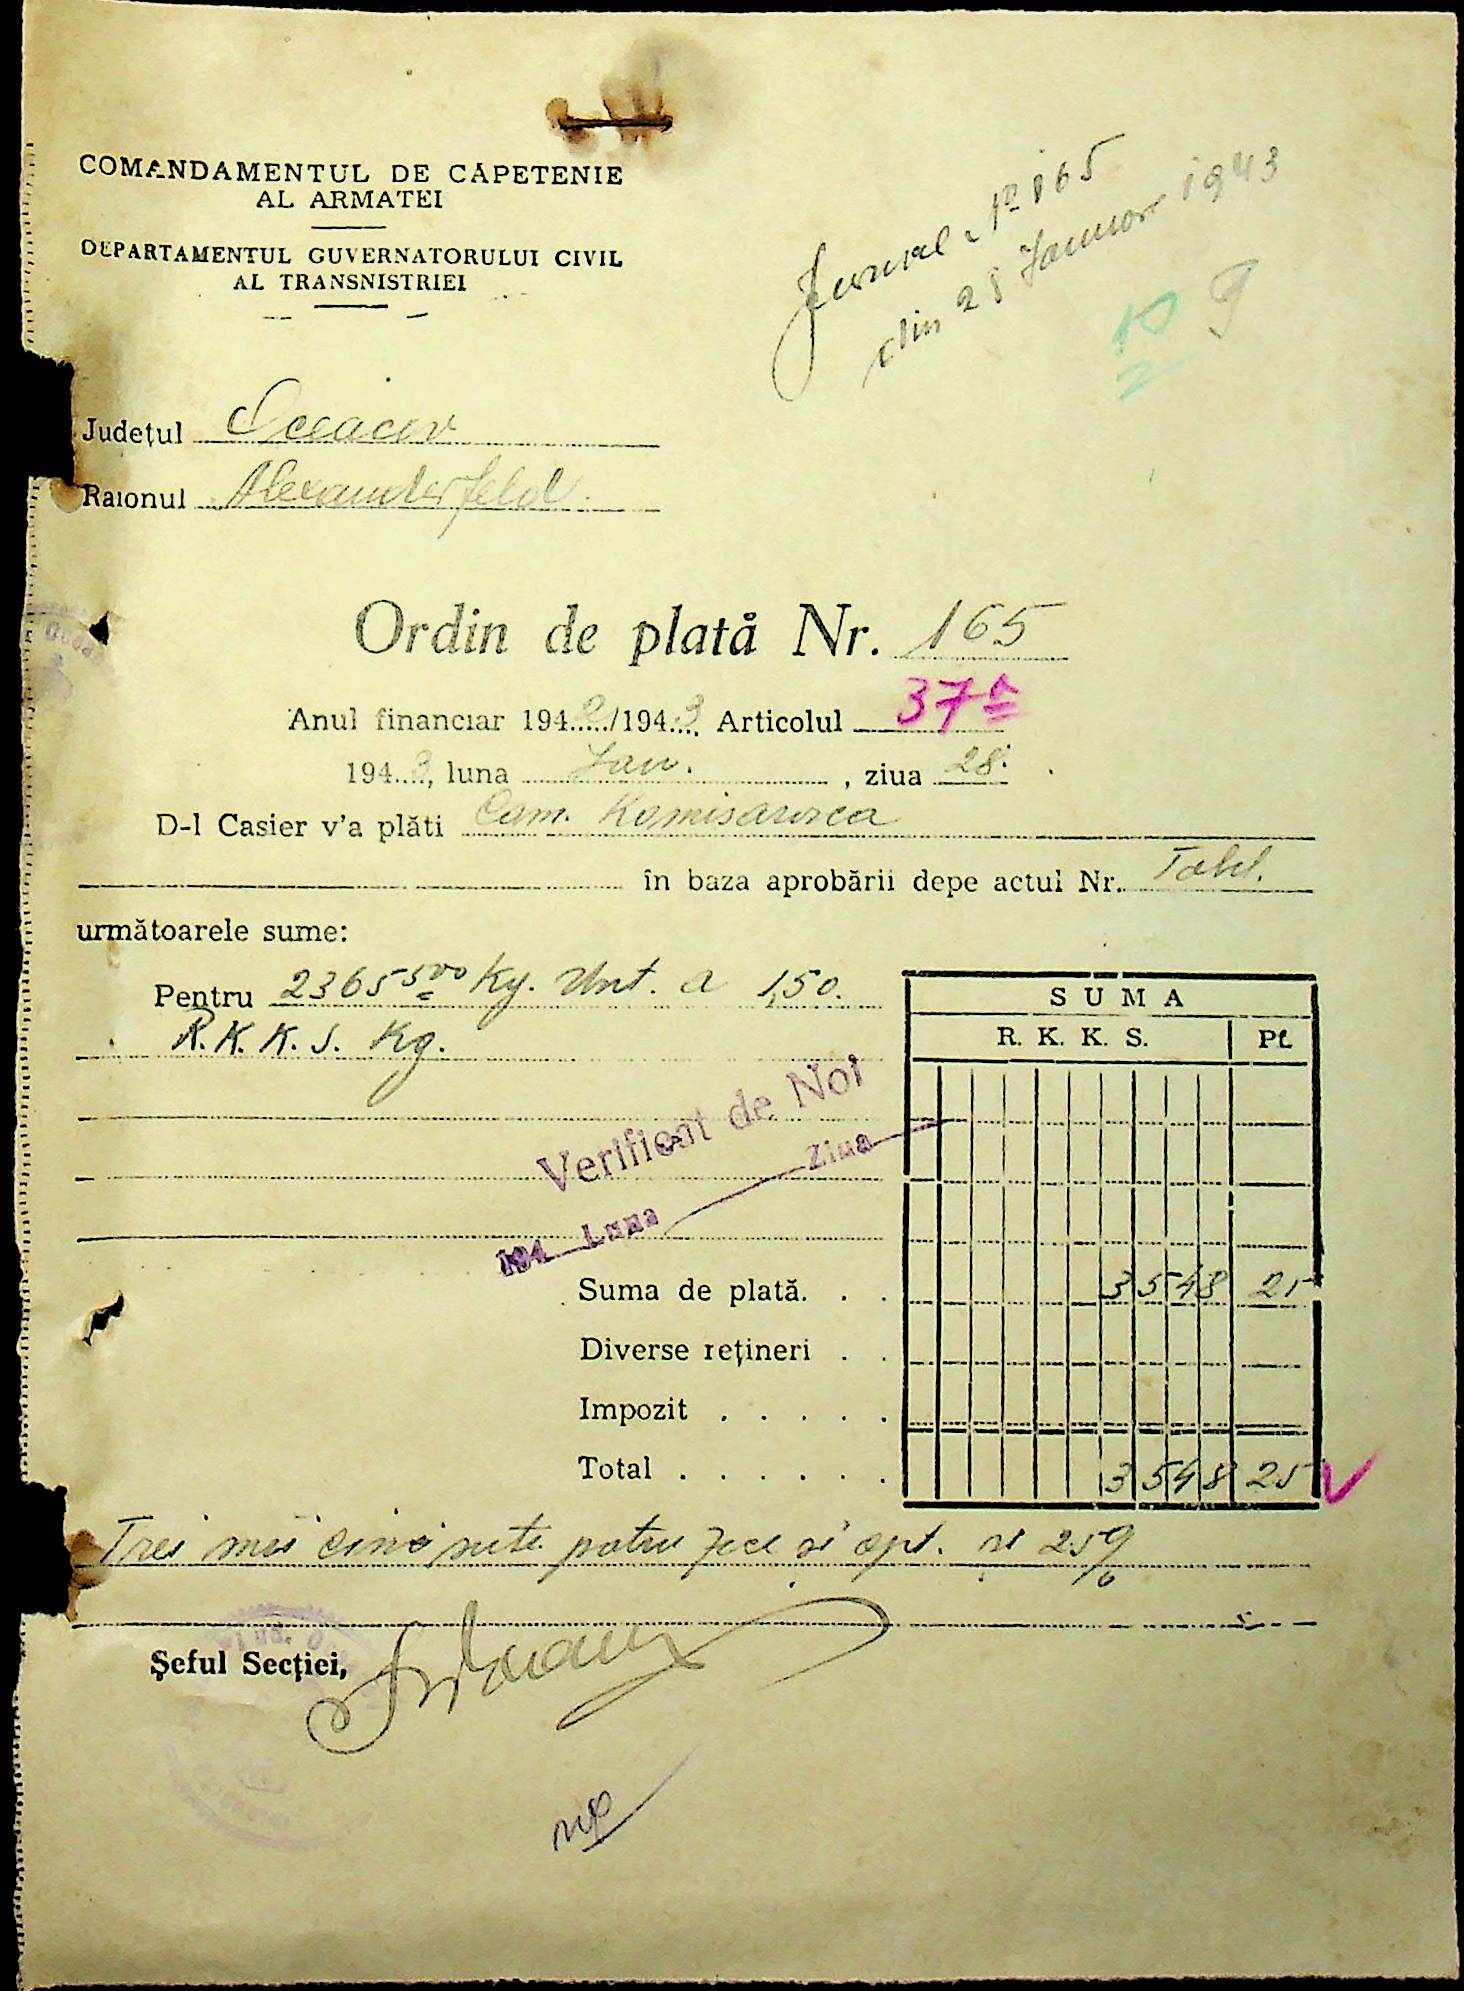 COMANDAMENTUL DE CAPETENIE
AL ARMATEI
DEPARTAMENTUL GUVERNATORULUI CIVIL
AL TRANSNISTRIEI
Jurnal No 165
din 28 Januar 1943
10 9
2
Județul Oceacov
Raionul Alexanderfeld
Ordin de plată Nr. 165
Anul financiar 1942/1943 Articolul 37a
1943, luna Jan. , ziua 28.
D-l Casier v'a plăti Com. Komisarovca
în baza aprobării depe actul Nr. Tabl.
următoarele sume:
Pentru 2365 500 Kg. Unt. a 1,50.
R.K.K.S. Kg.
SUMA
R. K. K. S. Pf.
Verificat de Noi
194 Luna Ziua
Suma de plată. . . 3548 25
Diverse rețineri . .
Impozit . . . . .
Total . . . . . . 3548 25
Trei mii cinci sute patru zece și opt. și 25
Şeful Secţiei,